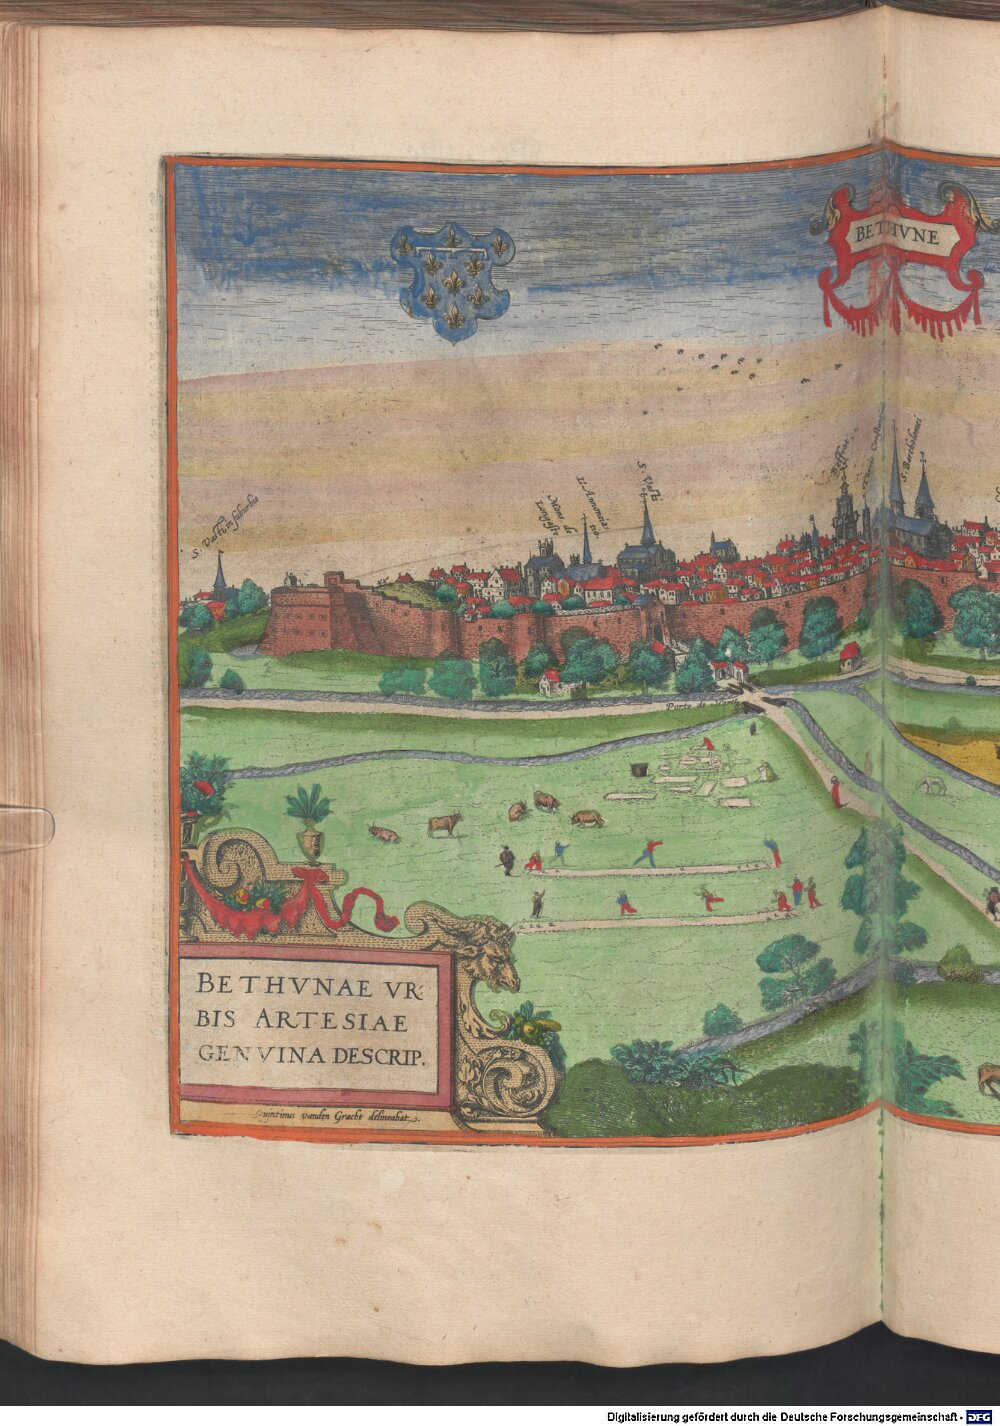 BETHVNE
S. Vasti in suburbio
L'Annuncia:
S. Vasti
Beffroe
S. Bartholomei
Porte de
BETHVNAE VR:
BIS ARTESIAE
GENVINA DESCRIP.
Quintinus vanden Gracht delineabat.
Digitalisierung gefördert durch die Deutsche Forschungsgemeinschaft - DFG